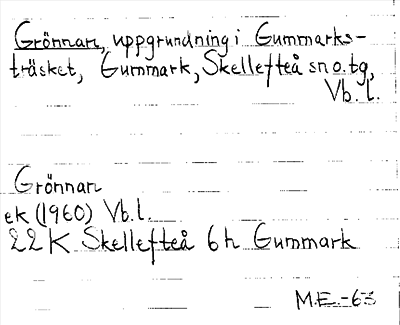 Grönnan, uppgrundning i Gummarks-
träsket, Gummark, Skellefteå sn o. tg,
Vb. l.
Grönnan
ek (1960) Vb. l.
22K Skellefteå 6h Gummark
M.E.-63